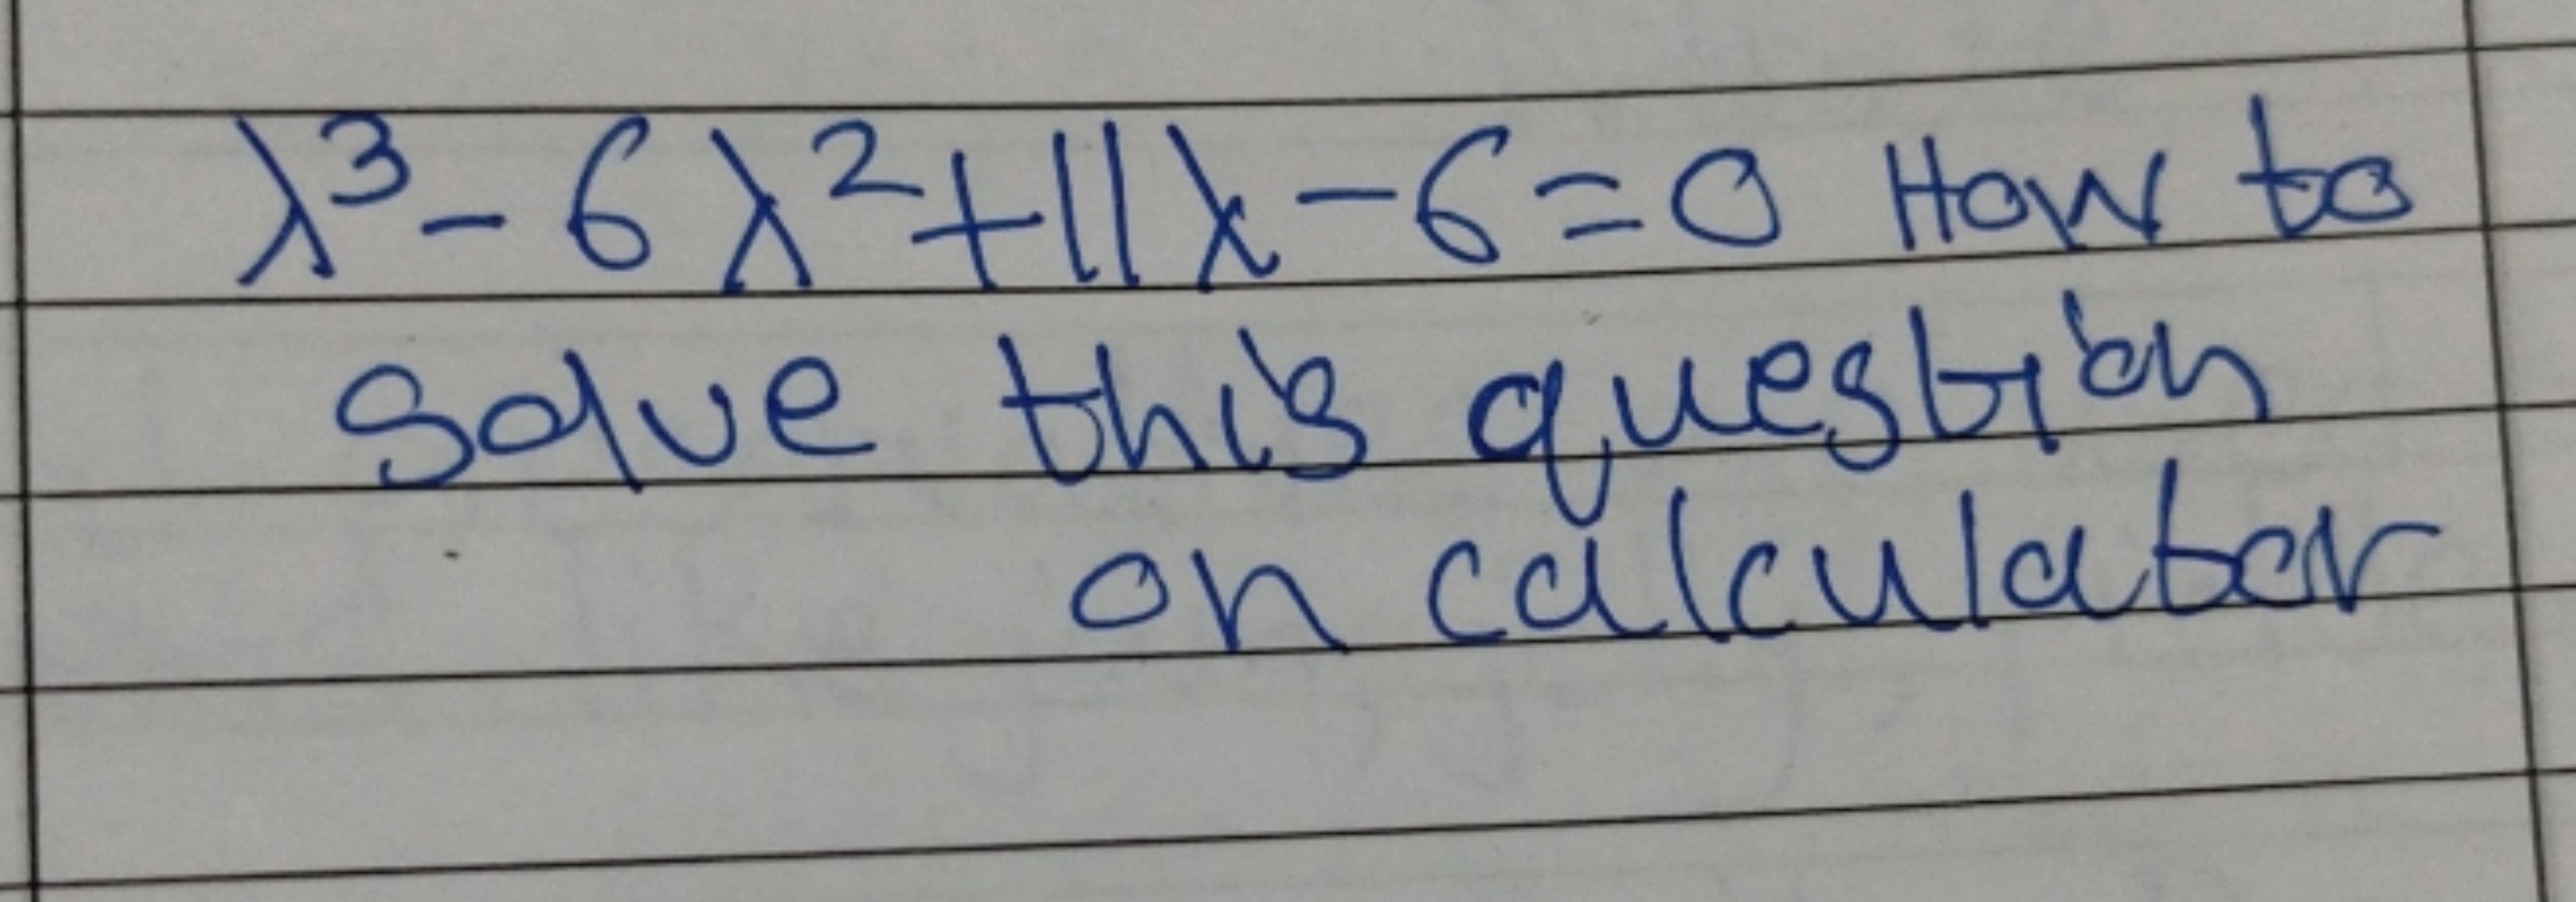 λ³ - 6λ² + 11λ - 6 = 0 How to
solve this question
on calculator